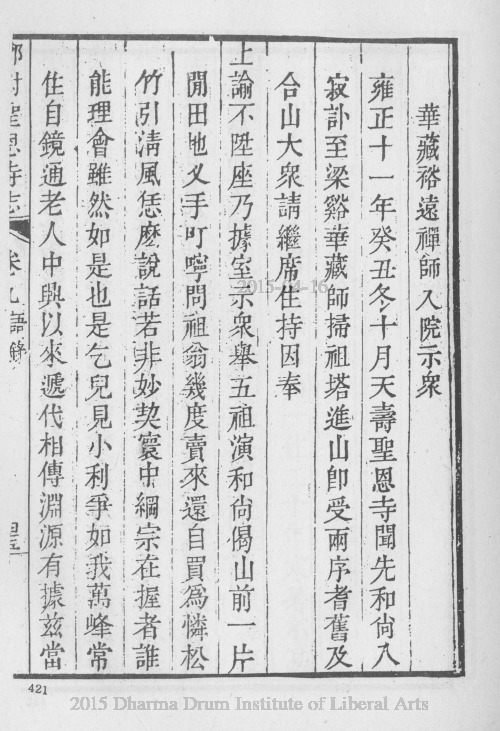 華藏裕遠禪師入院示衆
雍正十一年癸丑冬十月天壽聖恩寺聞先和尙入
寂訃至梁谿華藏師掃祖塔進山卽受兩序耆舊及
合山大衆請繼席住持因奉
上諭不陞座乃據室示衆舉五祖演和尙偈山前一片
閒田地叉手叮嚀問祖翁幾度賣來還自買爲憐松
竹引淸風恁麽說話若非妙契寰中綱宗在握者誰
能理會雖然如是也是乞兒見小利爭如我萬峰常
住自鏡通老人中興以來遞代相傳淵源有據茲當
聖恩寺志 卷九語錄
421
2015-04-16
2015 Dharma Drum Institute of Liberal Arts